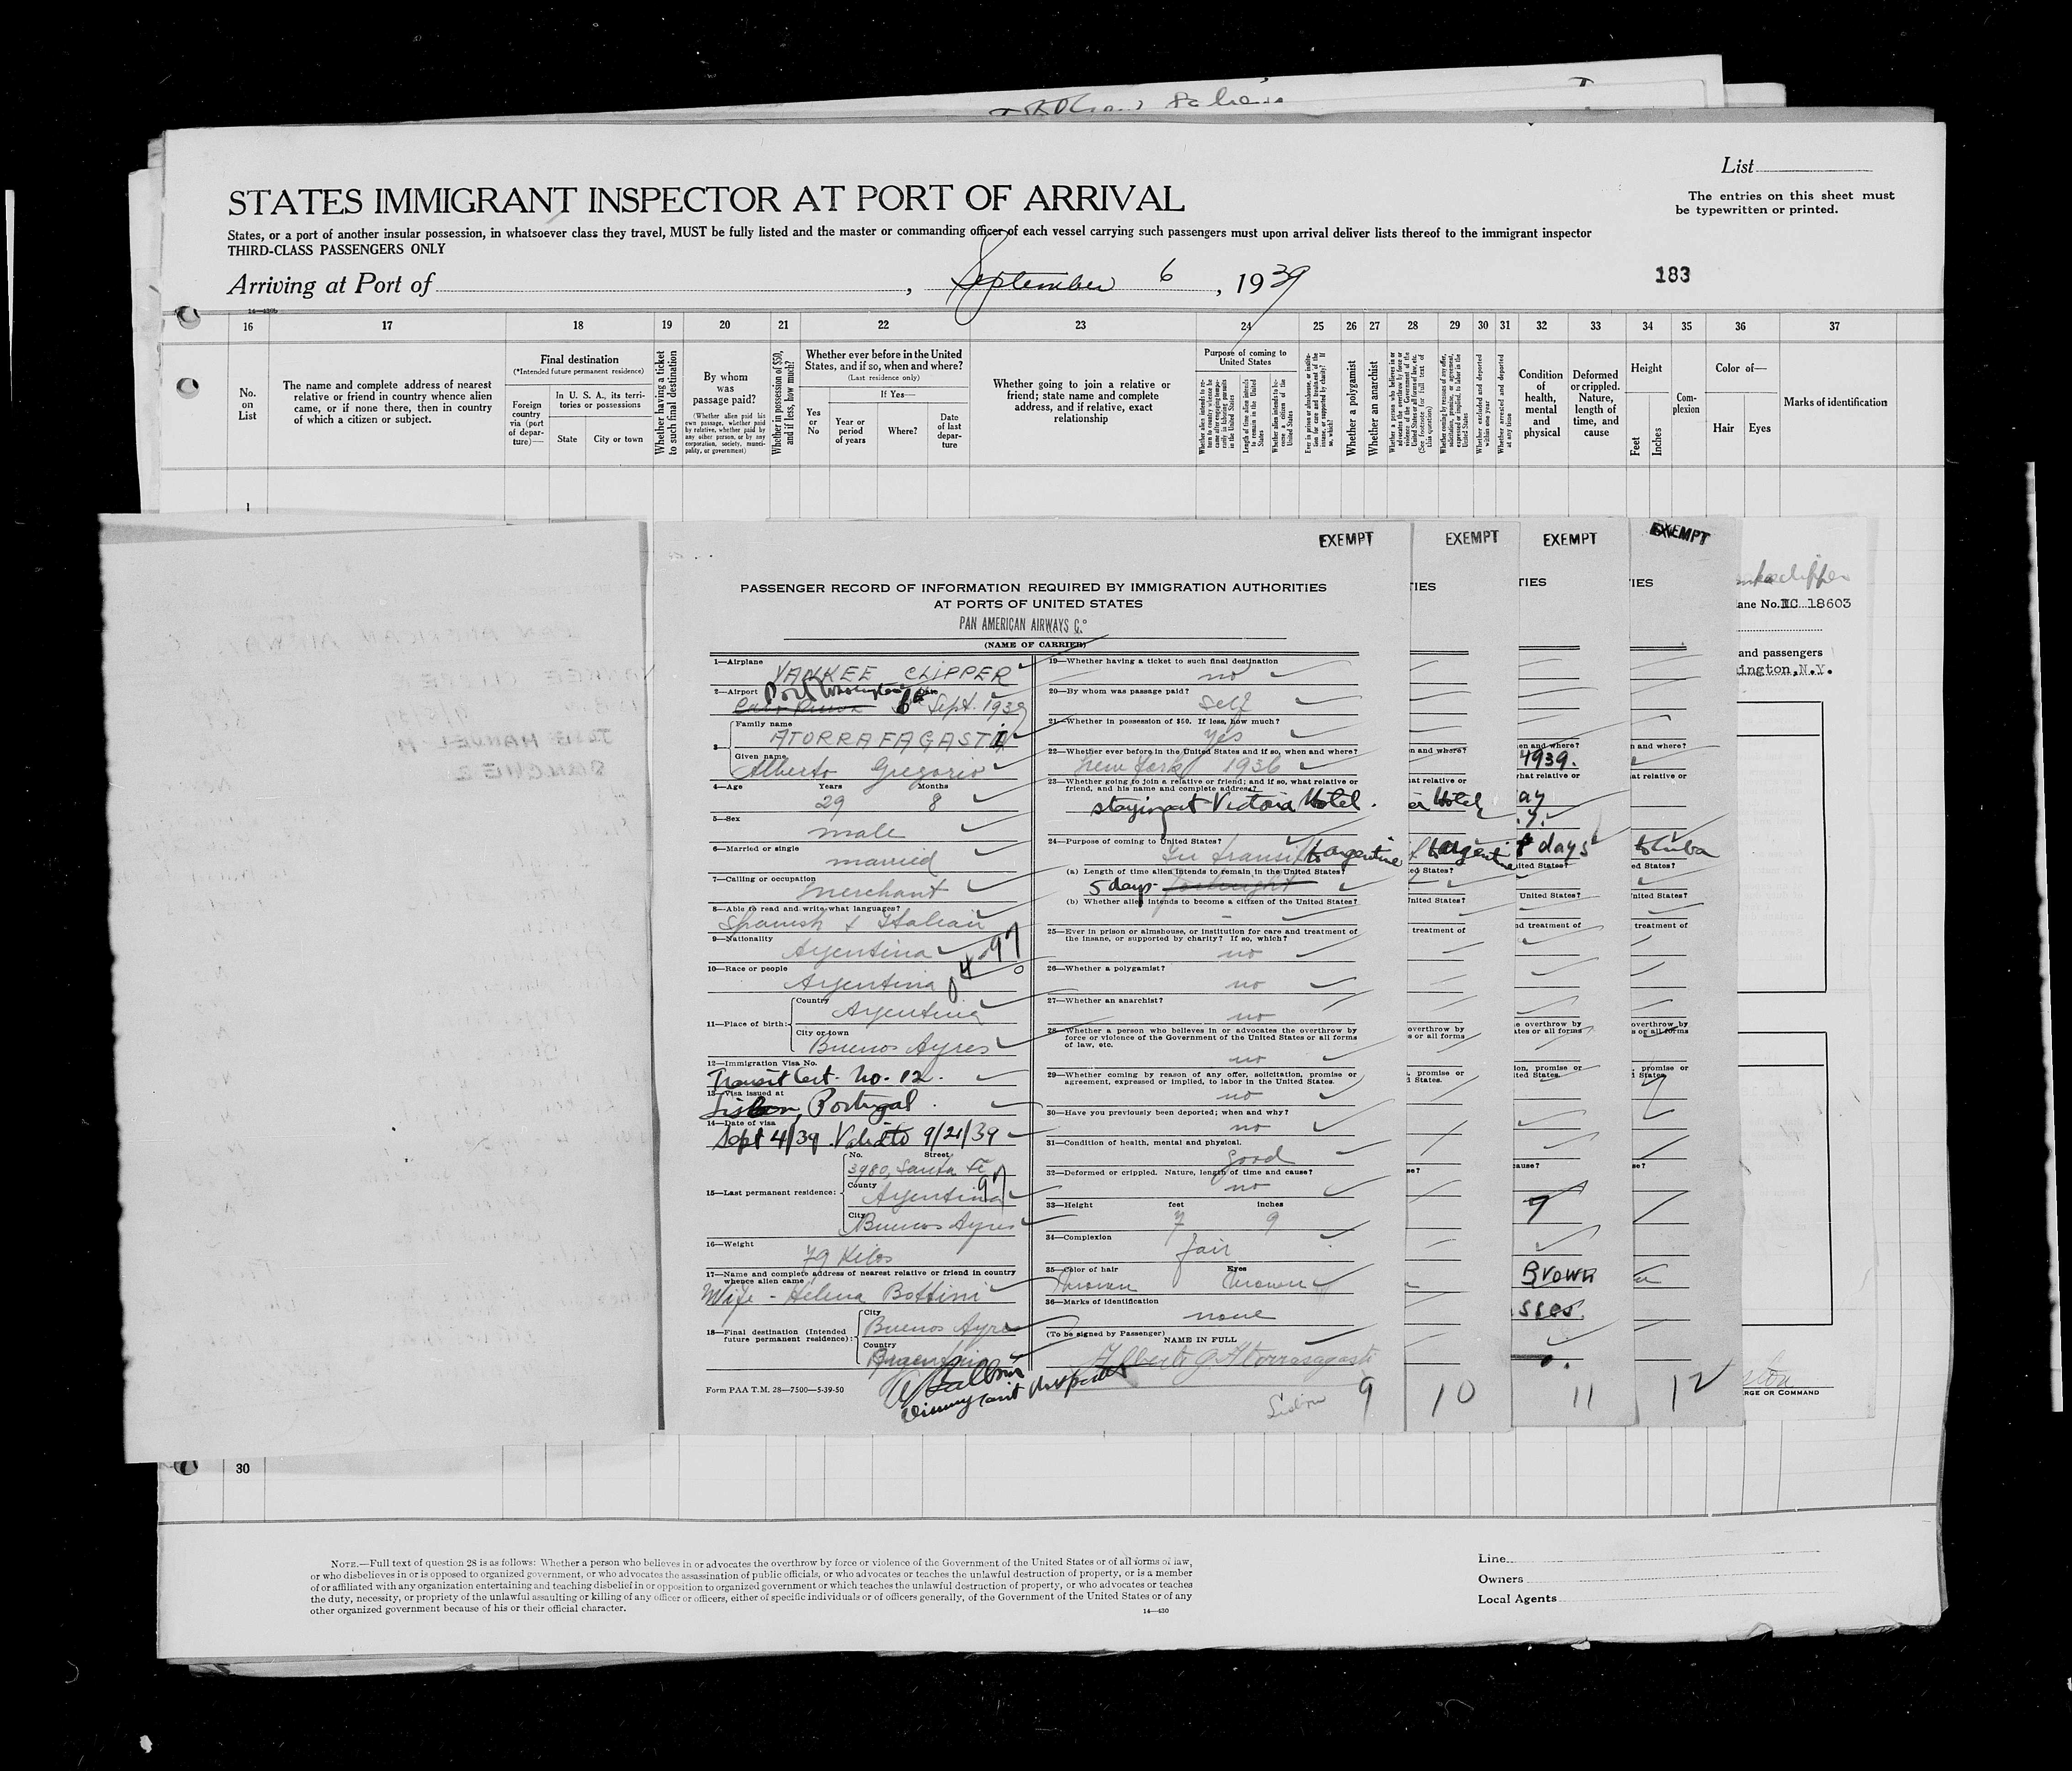 List
STATES IMMIGRANT INSPECTOR AT PORT OF ARRIVAL
The entries on this sheet must
be typewritten or printed.
States, or a port of another insular possession, in whatsoever class they travel, MUST be fully listed and the master or commanding officer of each vessel carrying such passengers must upon arrival deliver lists thereof to the immigrant inspector
THIRD-CLASS PASSENGERS ONLY
Arriving at Port of , September 6 , 1939
183
16 17 18 19 20 21 22 23 24 25 26 27 28 29 30 31 32 33 34 35 36 37
No. on List
The name and complete address of nearest relative or friend in country whence alien came, or if none there, then in country of which a citizen or subject.
Final destination
(*Intended future permanent residence)
Foreign country via (port of departure)—
In U. S. A., its territories or possessions
State
City or town
Whether having a ticket to such final destination
By whom was passage paid?
(Whether alien paid his own passage, whether paid by relative, whether paid by any other person, or by any corporation, society, municipality, or government)
Whether in possession of $50, and if less, how much?
Whether ever before in the United States, and if so, when and where?
(Last residence only)
Yes or No
If Yes—
Year or period of years
Where?
Date of last departure
Whether going to join a relative or friend; state name and complete address, and if relative, exact relationship
Purpose of coming to United States
Length of time alien intends to remain in the United States
Whether alien intends to become a citizen of the United States
Whether a polygamist
Whether an anarchist
Whether excluded and deported within one year
Whether arrested and deported at any time
Condition of health, mental and physical
Deformed or crippled. Nature, length of time, and cause
Height
Feet
Inches
Complexion
Color of—
Hair
Eyes
Marks of identification
1
EXEMPT
EXEMPT
EXEMPT
EXEMPT
PASSENGER RECORD OF INFORMATION REQUIRED BY IMMIGRATION AUTHORITIES
AT PORTS OF UNITED STATES
PAN AMERICAN AIRWAYS Co
(NAME OF CARRIER)
1—Airplane YANKEE CLIPPER
2—Airport Port Washington 6 Sept. 1939
3— Family name ATORRAFAGASTI
Given name Alberto Gregorio
4—Age Years 29 Months 8
5—Sex male
6—Married or single married
7—Calling or occupation merchant
8—Able to read and write what languages? Spanish & Italian
9—Nationality Argentina
10—Race or people Argentina
11—Place of birth: Country Argentina
City or town Buenos Ayres
12—Immigration Visa No. Transit Cert. No. 12.
13—Visa issued at Lisbon, Portugal.
14—Date of visa Sept 4/39 Valid to 9/21/39
15—Last permanent residence: No. Street 3980, Santa Fé
County Argentina
City Buenos Ayres
16—Weight 79 Kilos
17—Name and complete address of nearest relative or friend in country whence alien came
Wife - Helena Bottini
18—Final destination (Intended future permanent residence): City Buenos Ayres
Country Argentina
Form PAA T.M. 28—7500—5-39-50
Immigrant Inspector
19—Whether having a ticket to such final destination
no
20—By whom was passage paid?
self
21—Whether in possession of $50. If less, how much?
yes
22—Whether ever before in the United States and if so, when and where?
New York 1936
23—Whether going to join a relative or friend; and if so, what relative or friend, and his name and complete address?
staying at Victoria Hotel.
24—Purpose of coming to United States?
In transit to Argentine
(a) Length of time alien intends to remain in the United States?
5 days - fortnight
(b) Whether alien intends to become a citizen of the United States?
-
25—Ever in prison or almshouse, or institution for care and treatment of the insane, or supported by charity? If so, which?
no
26—Whether a polygamist?
no
27—Whether an anarchist?
no
28—Whether a person who believes in or advocates the overthrow by force or violence of the Government of the United States or all forms of law, etc.
no
29—Whether coming by reason of any offer, solicitation, promise or agreement, expressed or implied, to labor in the United States.
no
30—Have you previously been deported; when and why?
no
31—Condition of health, mental and physical.
good
32—Deformed or crippled. Nature, length of time and cause?
no
33—Height feet 7 inches 9
34—Complexion fair
35—Color of hair brown Eyes brown
36—Marks of identification
none
(To be signed by Passenger) NAME IN FULL
Alberto G Atorrasagasti
Lisbon 9
10
11
12
4939.
days
to Cuba
Brown
ane No. NC 18603
and passengers
ington, N.Y.
RGE OR COMMAND
30
NOTE.—Full text of question 28 is as follows: Whether a person who believes in or advocates the overthrow by force or violence of the Government of the United States or of all forms of law,
or who disbelieves in or is opposed to organized government, or who advocates the assassination of public officials, or who advocates or teaches the unlawful destruction of property, or is a member
of or affiliated with any organization entertaining and teaching disbelief in or opposition to organized government or which teaches the unlawful destruction of property, or who advocates or teaches
the duty, necessity, or propriety of the unlawful assaulting or killing of any officer or officers, either of specific individuals or of officers generally, of the Government of the United States or of any
other organized government because of his or their official character.
14—430
Line
Owners
Local Agents